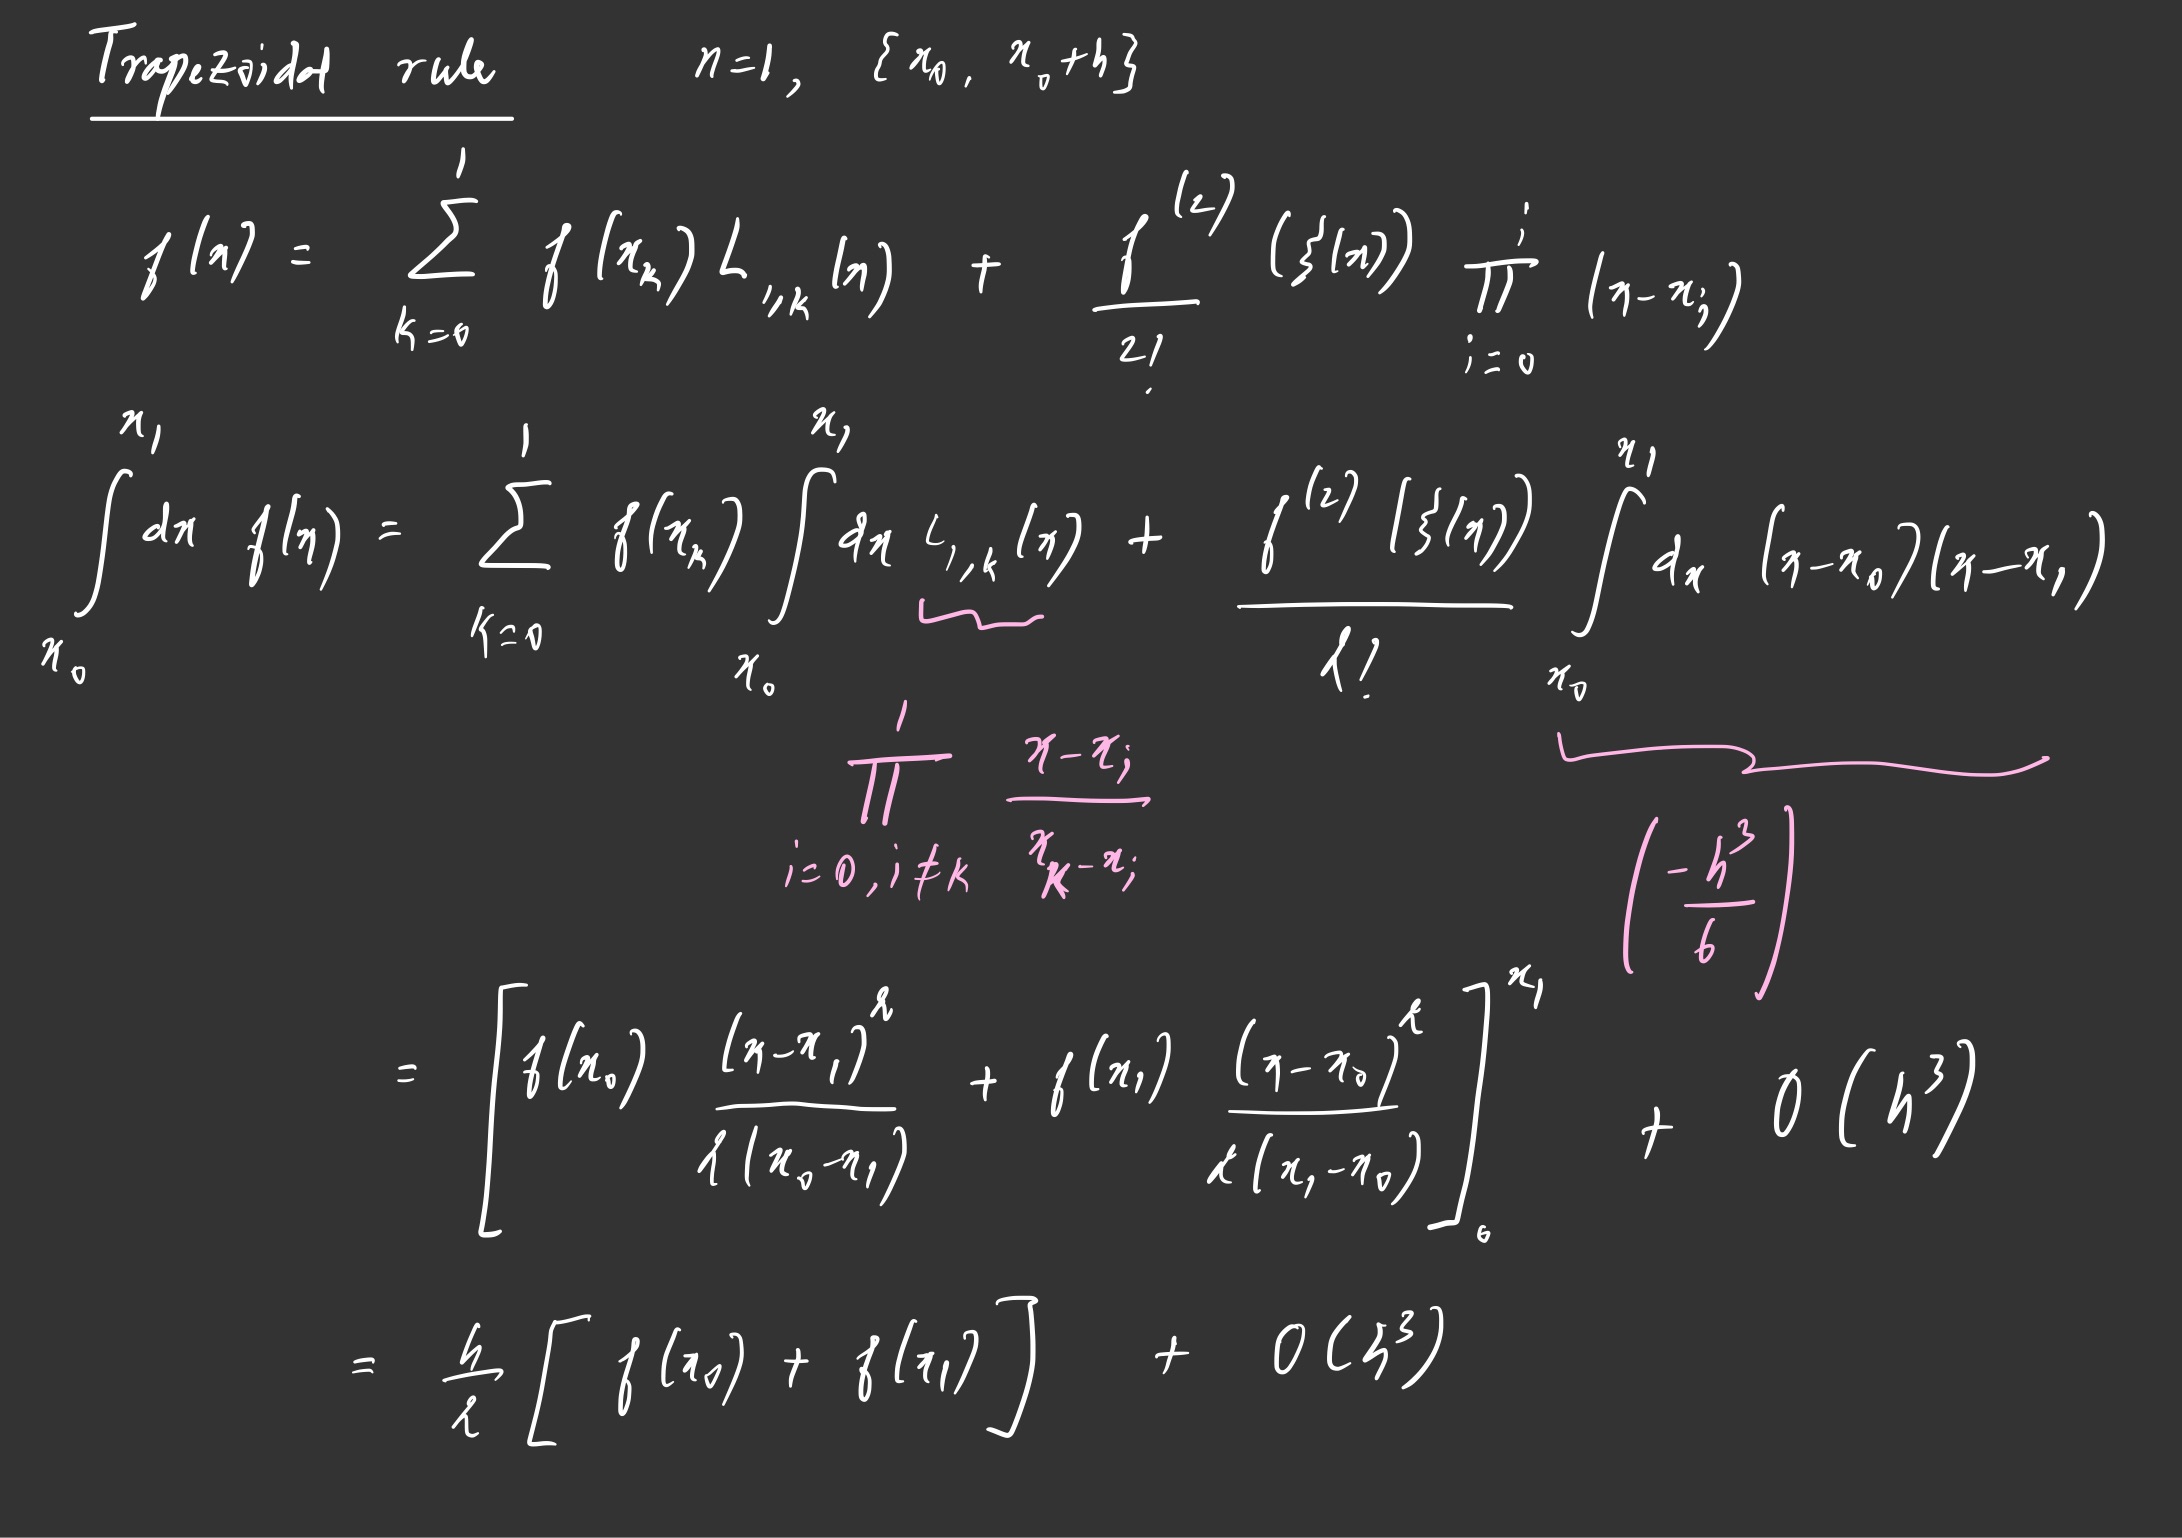 Trapezoidal rule n=1, {x₀, x₀+h}
f(x) = ∑_{k=0}^{1} f(x_k) L_{1,k}(x) + \frac{f^{(2)}(ξ(x))}{2!} ∏_{i=0}^{1} (x-x_i)
∫_{x₀}^{x₁} dx f(x) = ∑_{k=0}^{1} f(x_k) ∫_{x₀}^{x₁} dx L_{1,k}(x) + \frac{f^{(2)}(ξ(x))}{2!} ∫_{x₀}^{x₁} dx (x-x₀)(x-x₁)
∏_{i=0, i≠k}^{1} \frac{x-x_i}{x_k-x_i} (\frac{-h³}{6})
= [f(x₀) \frac{(x-x₁)²}{2(x₀-x₁)} + f(x₁) \frac{(x-x₀)²}{2(x₁-x₀)}]_{0}^{x₁} + O(h³)
= \frac{h}{2} [f(x₀) + f(x₁)] + O(h³)